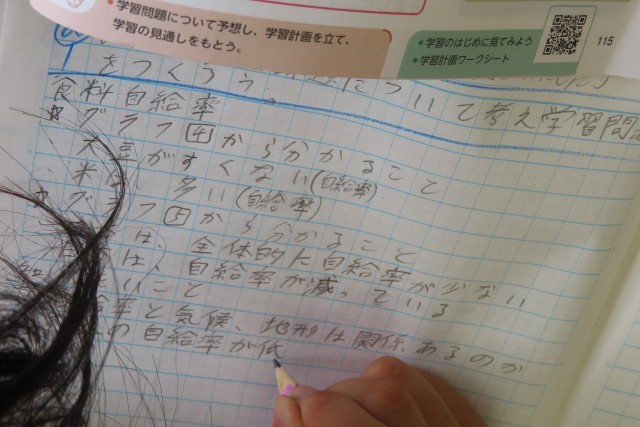 ・学習問題について予想し、学習計画を立て、
学習の見通しをもとう。
・学習のはじめに見てみよう
・学習計画ワークシート
115
をつくろう。 ついて考え学習問
食料自給率
☆グラフ4から分かること
大豆がすくない(自給率)
米 多い(自給率)
☆グラフ5から分かること
は、全体的に自給率が少ない
は、自給率が減っている
いこと
率と気候、地形は関係あるのか
の自給率が低